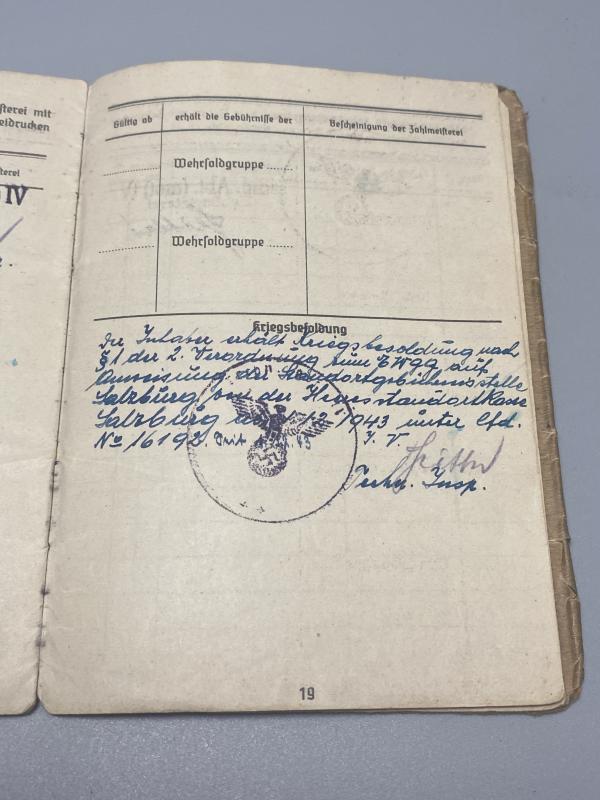 sterei mit
eidrucken
sterei
IV
Gültig ab
erhält die Gebührnisse der
Bescheinigung der Zahlmeisterei
Wehrsoldgruppe ........
Wehrsoldgruppe ........
Kriegsbesoldung
Der Inhaber erhält Kriegsbesoldung nach
§ 1 der 2. Verordnung zum EWGG auf
Anweisung der Standortgebührnisstelle
Salzburg von der Heeresstandortkasse
Salzburg 12 1943 unter lfd.
No 16192. 43 J. V.
Techn. Insp.
19